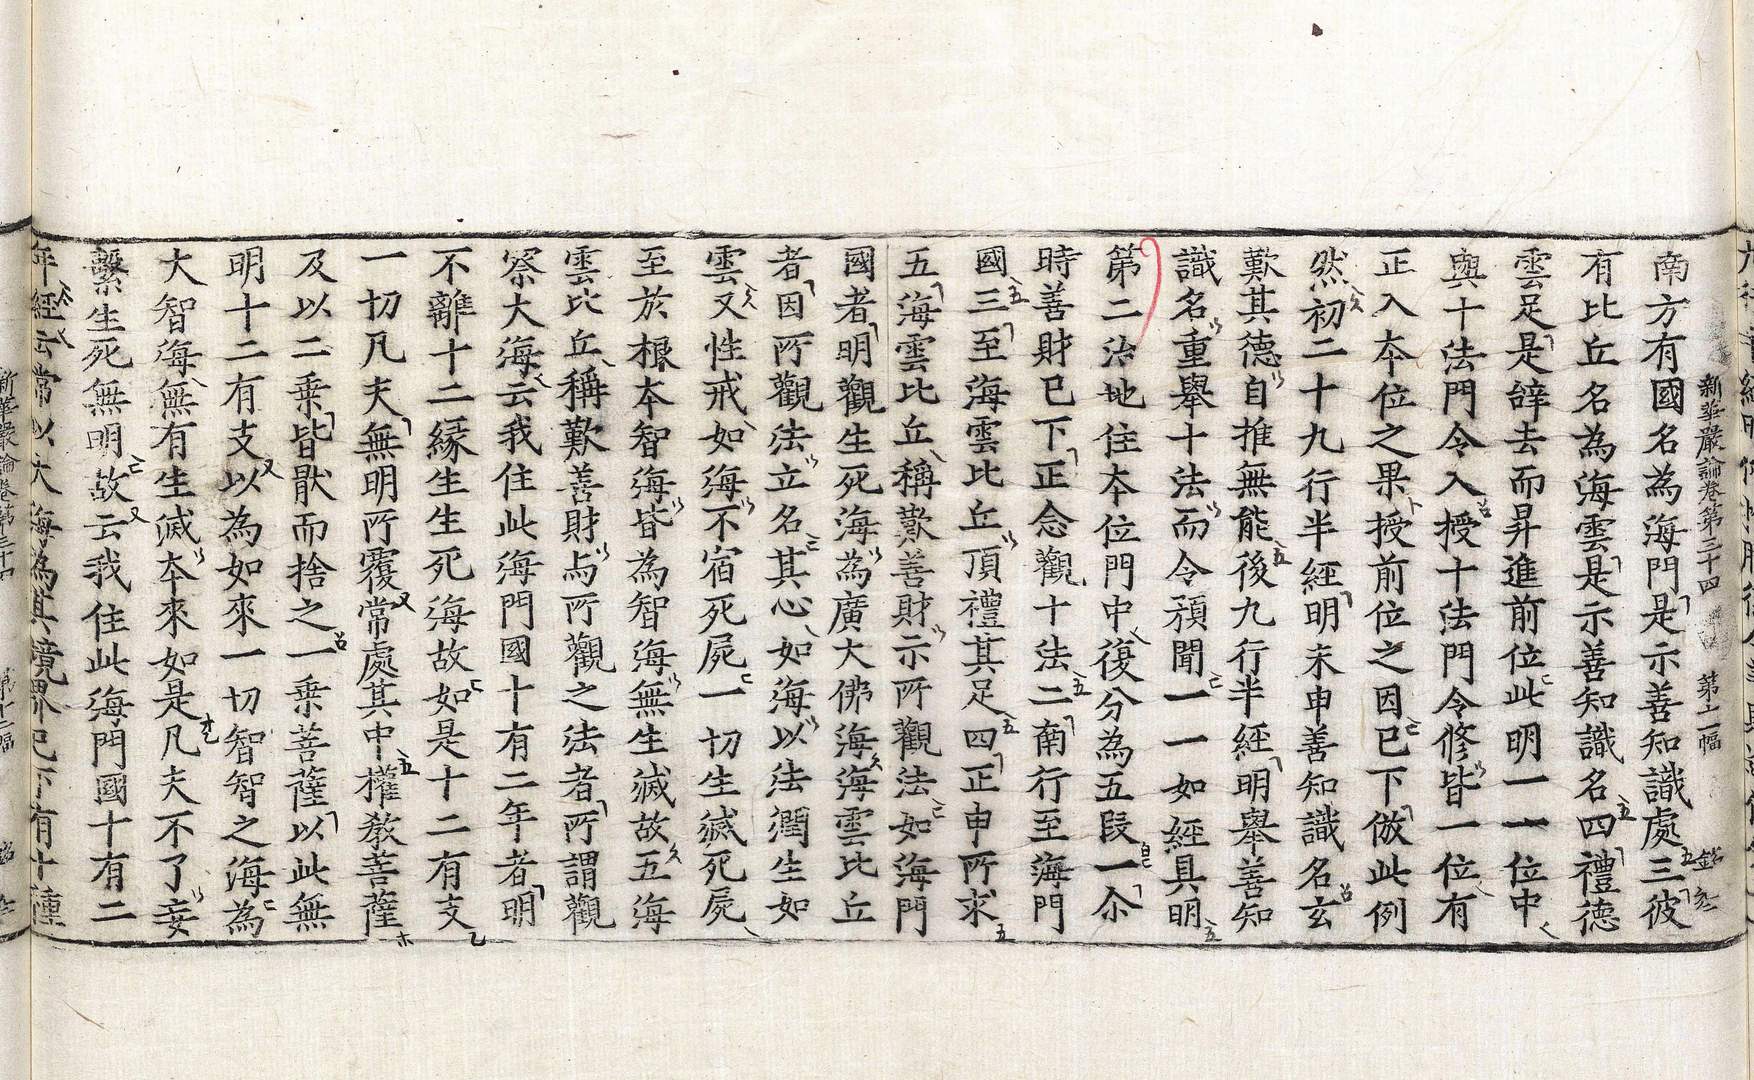 新華嚴論卷第三十四 第十二幅
南方有國名為海門是示善知識處三彼
有比丘名為海雲是示善知識名四禮德
雲足是辝去而昇進前位此明一一位中
與十法門令入授十法門令修皆一位有
正入本位之果授前位之因已下倣此例
然初二十九行半經明未申善知識名玄
歎其德自推無能後九行半經明舉善知
識名重舉十法而令預聞一一如經具明
第二治地住本位門中復分為五段一尒
時善財已下正念觀十法二南行至海門
國三至海雲比丘頂禮其足四正申所求
五海雲比丘稱歎善財示所觀法如海門
國者明觀生死海為廣大佛海海雲比丘
者因所觀法立名其心如海以法潤生如
雲又性戒如海不宿死屍一切生滅死屍
至於根本智海皆為智海無生滅故五海
雲比丘稱歎善財与所觀之法者所謂觀
察大海云我住此海門國十有二年者明
不離十二緣生生死海故如是十二有支
一切凡夫無明所覆常處其中權教菩薩
及以二乗皆猒而捨之一乗菩薩以此無
明十二有支以為如來一切智智之海為
大智海無有生滅本來如是凡夫不了妄
繫生死無明故云我住此海門國十有二
年經云常以大海為其境界已下有十種